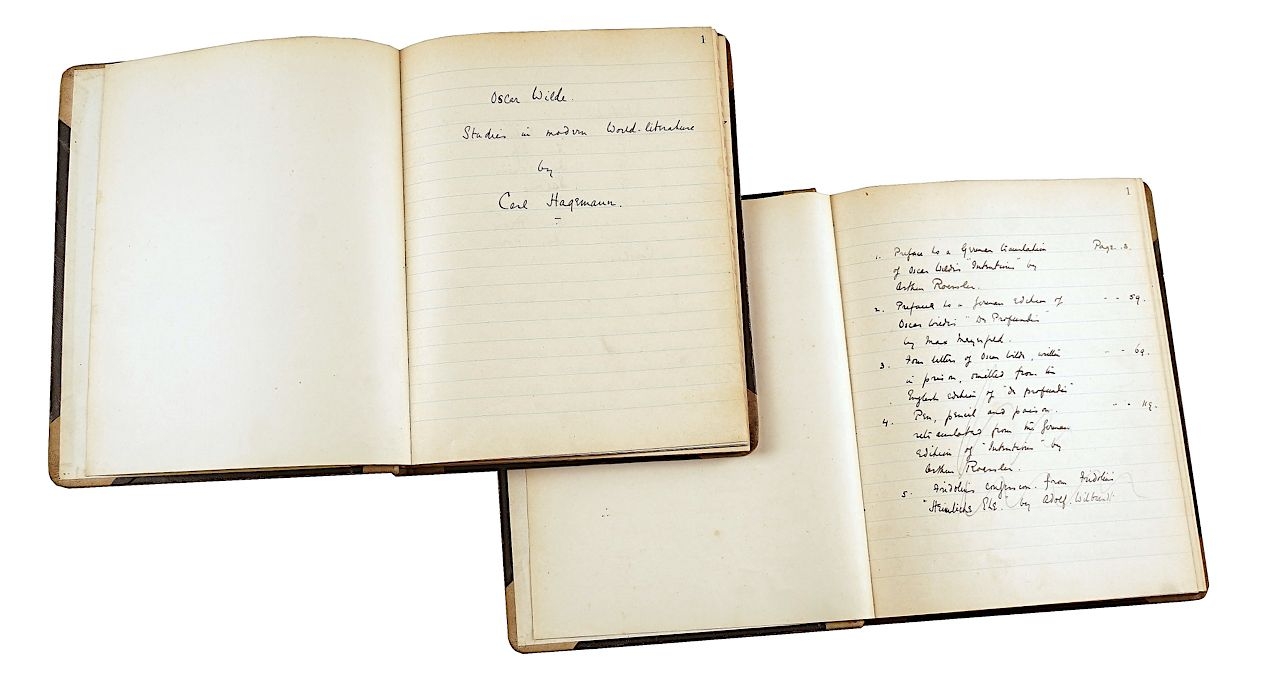 1
Oscar Wilde.
Studies in modern World-literature
by
Carl Hagemann.
1
1. Preface to a German translation Page. 3.
of Oscar Wilde's "Intentions" by
Arthur Roessler.
2. Preface to a German Edition of - - 59.
Oscar Wilde's "De Profundis"
by Max Meyerfeld.
3. Four letters of Oscar Wilde, written - - 69.
in prison, omitted from the
English edition of "De profundis"
4. Pen, pencil and poison. - - 119.
retranslated from the German
Edition of "Intentions" by
Arthur Roessler.
5. Fridolin's confession. from Fridolin's
"Heimliche Ehe." by Adolf Wilbrandt.